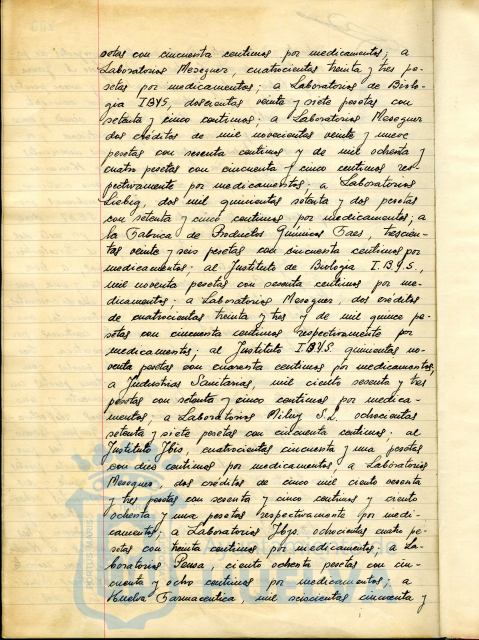 setas con cincuenta centimos por medicamentos; a
Laboratorios Meseguer, cuatrocientas treinta y tres pe-
setas por medicamentos; a Laboratorios de Biolo-
gia IBYS, doscientas veinte y siete pesetas con
setenta y cinco centimos; a Laboratorios Meseguer
dos créditos de mil novecientas veinte y nueve
pesetas con sesenta centimos y de mil ochenta y
cuatro pesetas con cincuenta y cinco centimos res-
pectivamente por medicamentos; a Laboratorios
Liebig, dos mil quinientas setenta y dos pesetas
con setenta y cinco centimos por medicamentos; a
la Fabrica de Productos Quimicos Faes, trescien-
tas veinte y seis pesetas con cincuenta centimos por
medicamentos; al Instituto de Biologia I.B.Y.S.,
mil noventa pesetas con sesenta centimos por me-
dicamentos; a Laboratorios Meseguer, dos créditos
de cuatrocientas treinta y tres y de mil quince pe-
setas con cincuenta centimos respectivamente por
medicamentos; al Instituto I.B.Y.S. quinientas no-
venta pesetas con cuarenta centimos por medicamentos;
a Industrias Sanitarias, mil ciento sesenta y tres
pesetas con setenta y cinco centimos por medica-
mentos; a Laboratorios Miluy S.L. ochocientas
setenta y siete pesetas con cincuenta centimos; al
Instituto Ibis, cuatrocientas cincuenta y una pesetas
con diez centimos por medicamentos; a Laboratorios
Meseguer, dos créditos de cinco mil ciento sesenta
y tres pesetas con sesenta y cinco centimos y ciento
ochenta y una pesetas respectivamente por medi-
camentos; a Laboratorios Ibys, ochocientas cuatro pe-
setas con treinta centimos por medicamentos; a La-
boratorios Pensa, ciento ochenta pesetas con cin-
cuenta y ocho centimos por medicamentos; a
Huelva Farmaceutica, mil seiscientas cincuenta y